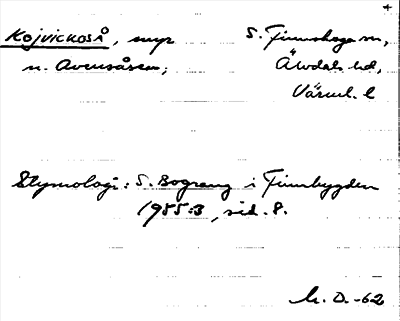 Kojvickoså, myr S. Finnskoga sn,
n. Avensåsen; Älvdals hd,
Värml. l
Etymologi: S. Bograng i Finnbygden
1955:3, sid. 8.
M. O. -62